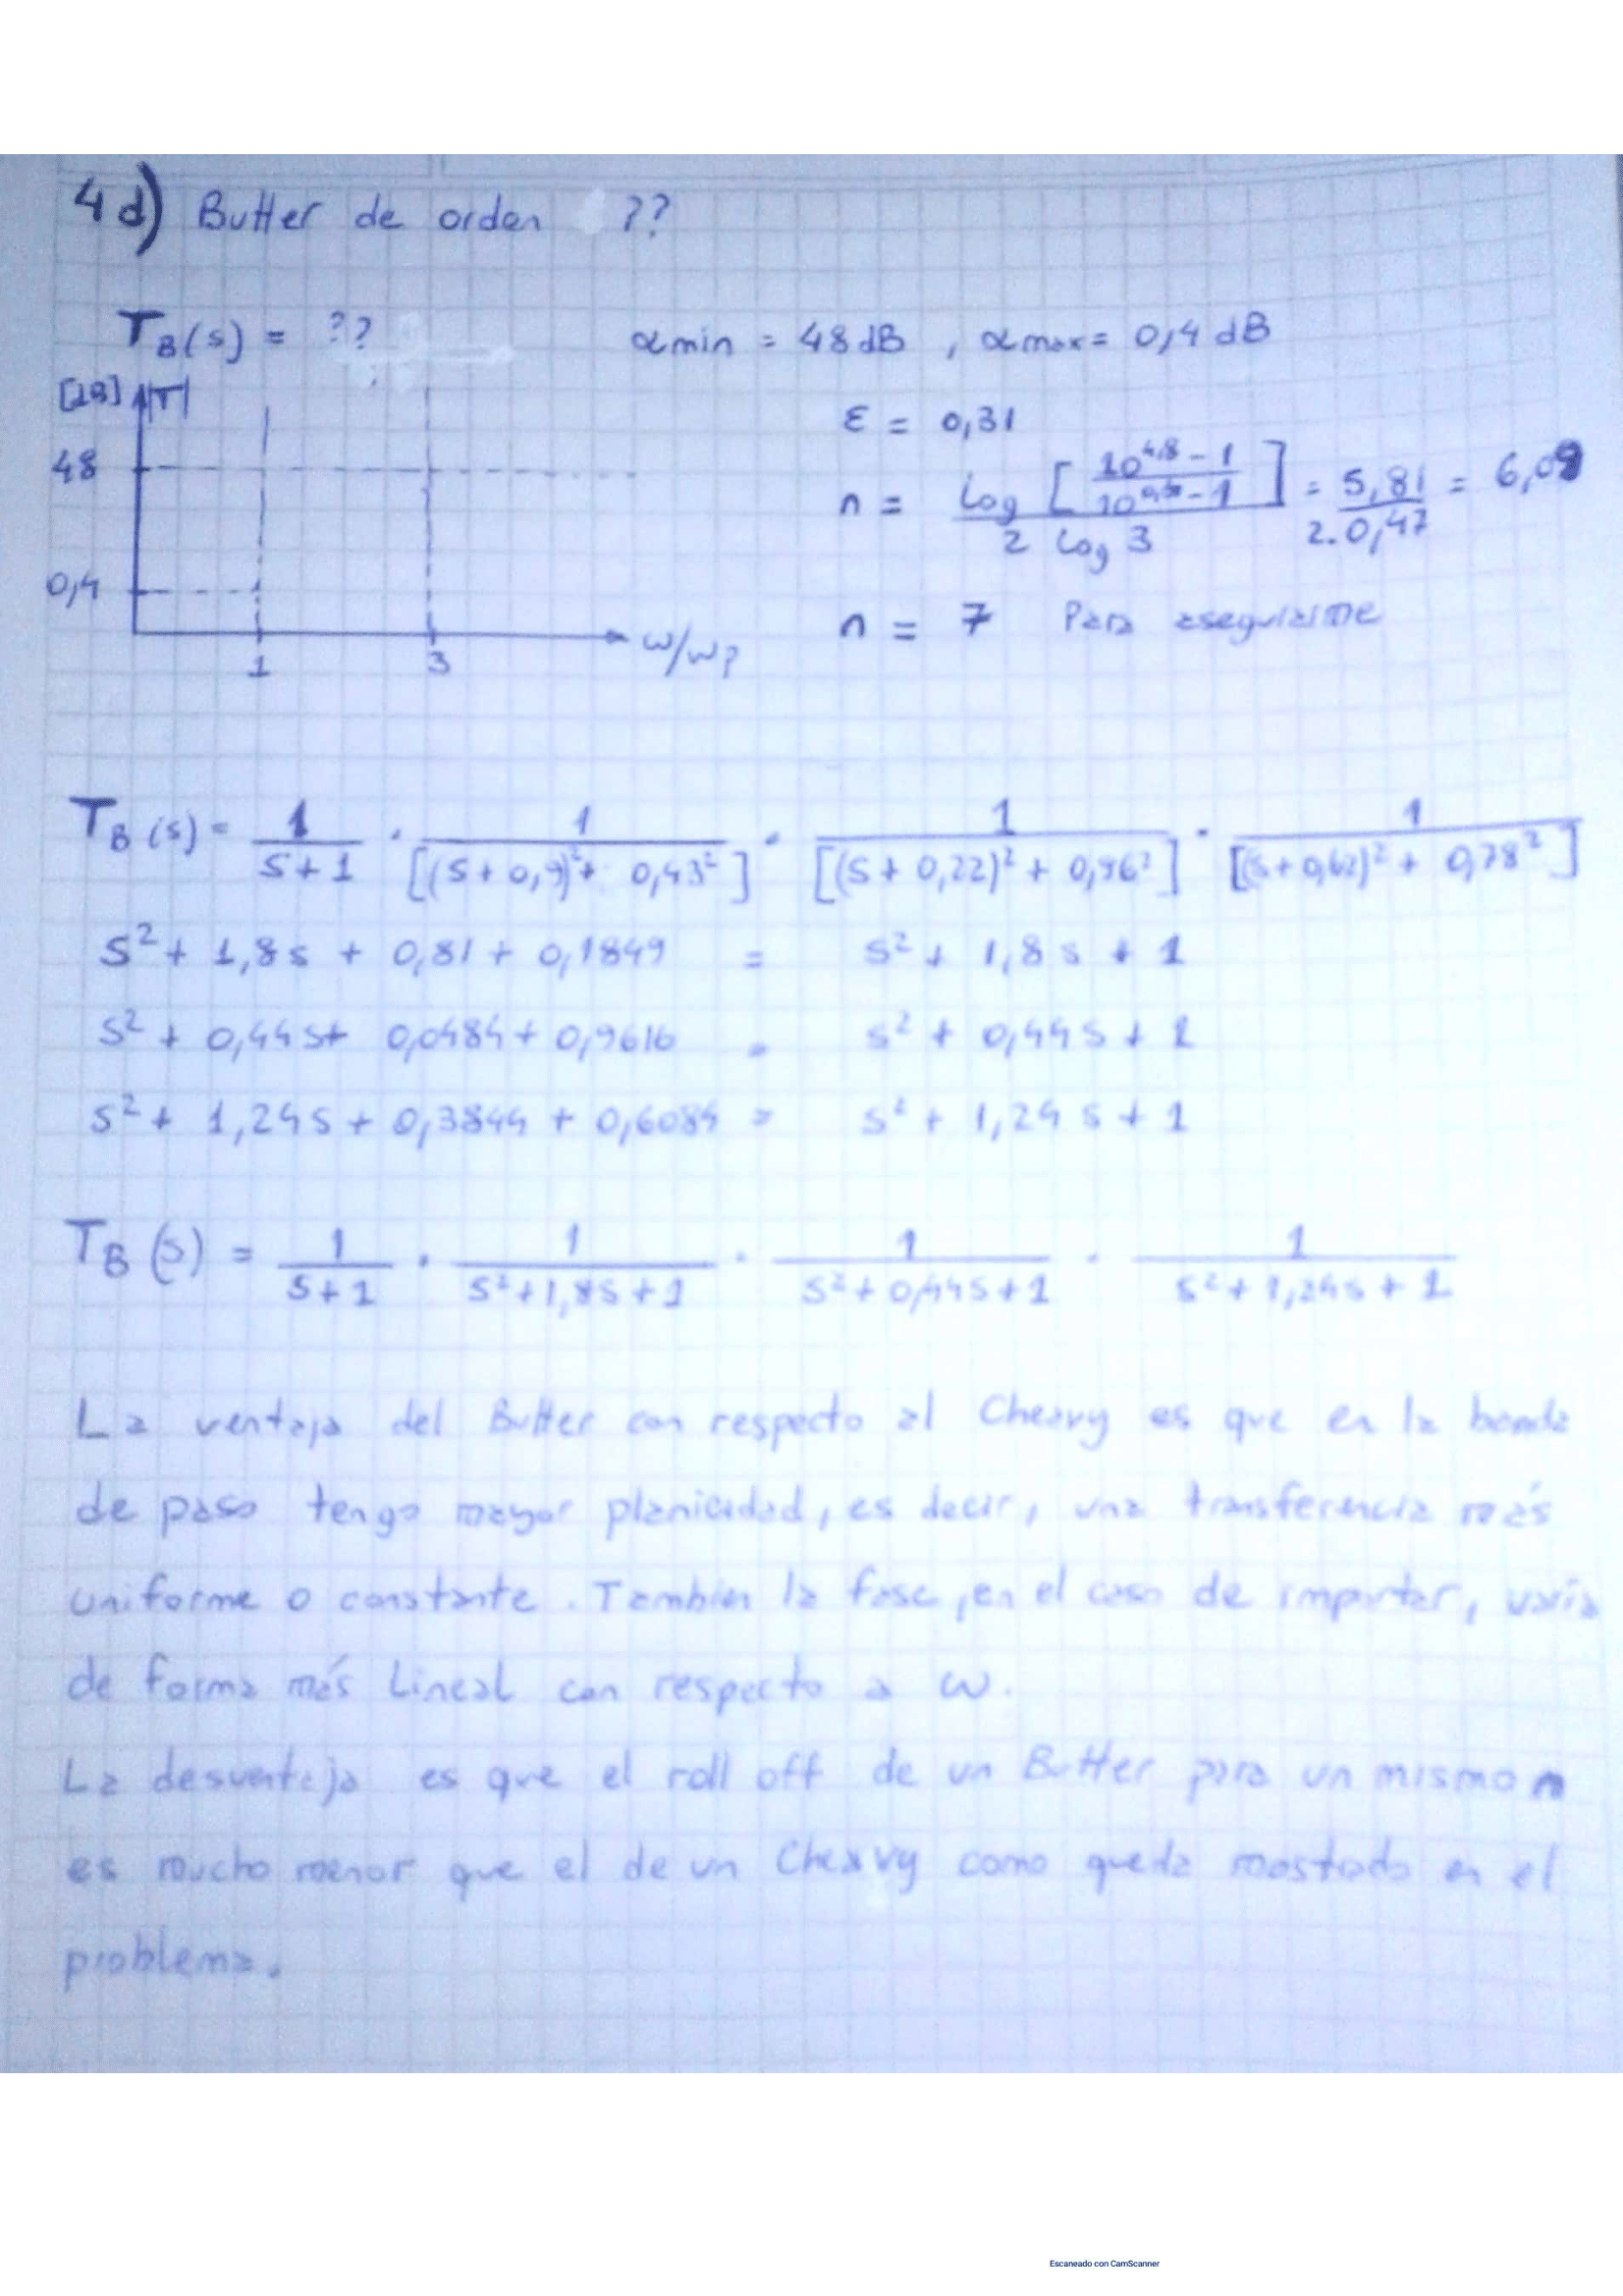 4d) Butter de orden ??
T_B(s) = ?? αmin = 48 dB , αmax = 0,4 dB
[dB] |T|
ε = 0,31
48
n = log [ (10^4,8 - 1) / (10^ - 1) ] / (2 log 3) = 5,81 / (2.0,47) = 6,09
0,4
n = 7 Para asegurarme
1 3 ω/ωp
T_B(s) = 1/(s+1) . 1/[(s+0,9)²+ 0,43²] . 1/[(s+0,22)² + 0,96²] . 1/[(s+0,62)² + 0,78²]
s² + 1,8s + 0,81 + 0,1849 = s² + 1,8s + 1
s² + 0,44s + 0,0484 + 0,9616 = s² + 0,44s + 1
s² + 1,24s + 0,3844 + 0,6084 = s² + 1,24s + 1
T_B(s) = 1/(s+1) . 1/(s²+1,8s+1) . 1/(s²+0,44s+1) . 1/(s²+1,24s+1)
La ventaja del Butter con respecto al Cheavy es que en la banda
de paso tengo mayor planicidad, es decir, una transferencia más
uniforme o constante. Tambien la fase, en el caso de importar, varía
de forma más lineal con respecto a ω.
La desventaja es que el roll off de un Butter para un mismo n
es mucho menor que el de un Cheavy como queda mostrado en el
problema.
Escaneado con CamScanner